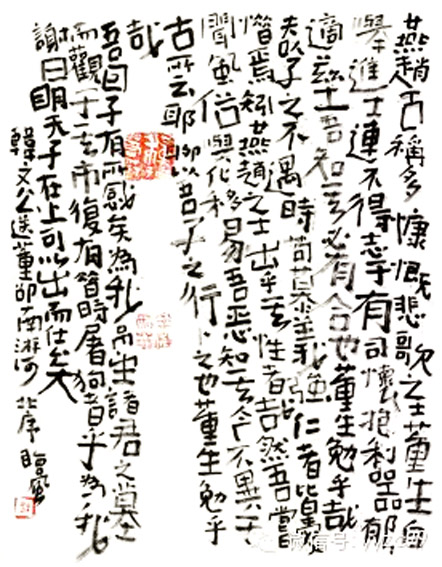 燕趙古稱多慷慨悲歌之士董生自
舉進士連不得志于有司懷抱利器郁郁
適茲土吾知其必有合也董生勉乎哉
夫以子之不遇時苟慕義強仁者皆愛
惜焉矧燕趙之士出乎其性者哉然吾嘗
聞風俗與化移易吾惡知其今不異于
古所云耶聊以吾子之行卜之也董生勉乎
哉
吾因子有所感矣為我吊望諸君之墓
而觀于其市復有昔時屠狗者乎為我
謝曰明天子在上可以出而仕矣
韓文公送董邵南游河北序 臨風
微信号: